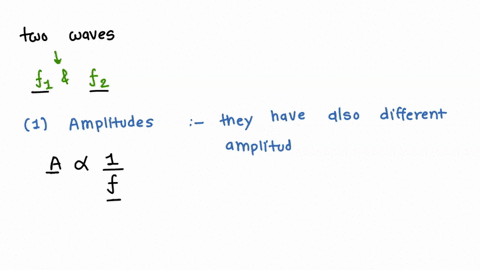 two waves
↓
f₁ & f₂
(1) Amplitudes :- they have also different
amplitud
A ∝ 1/f